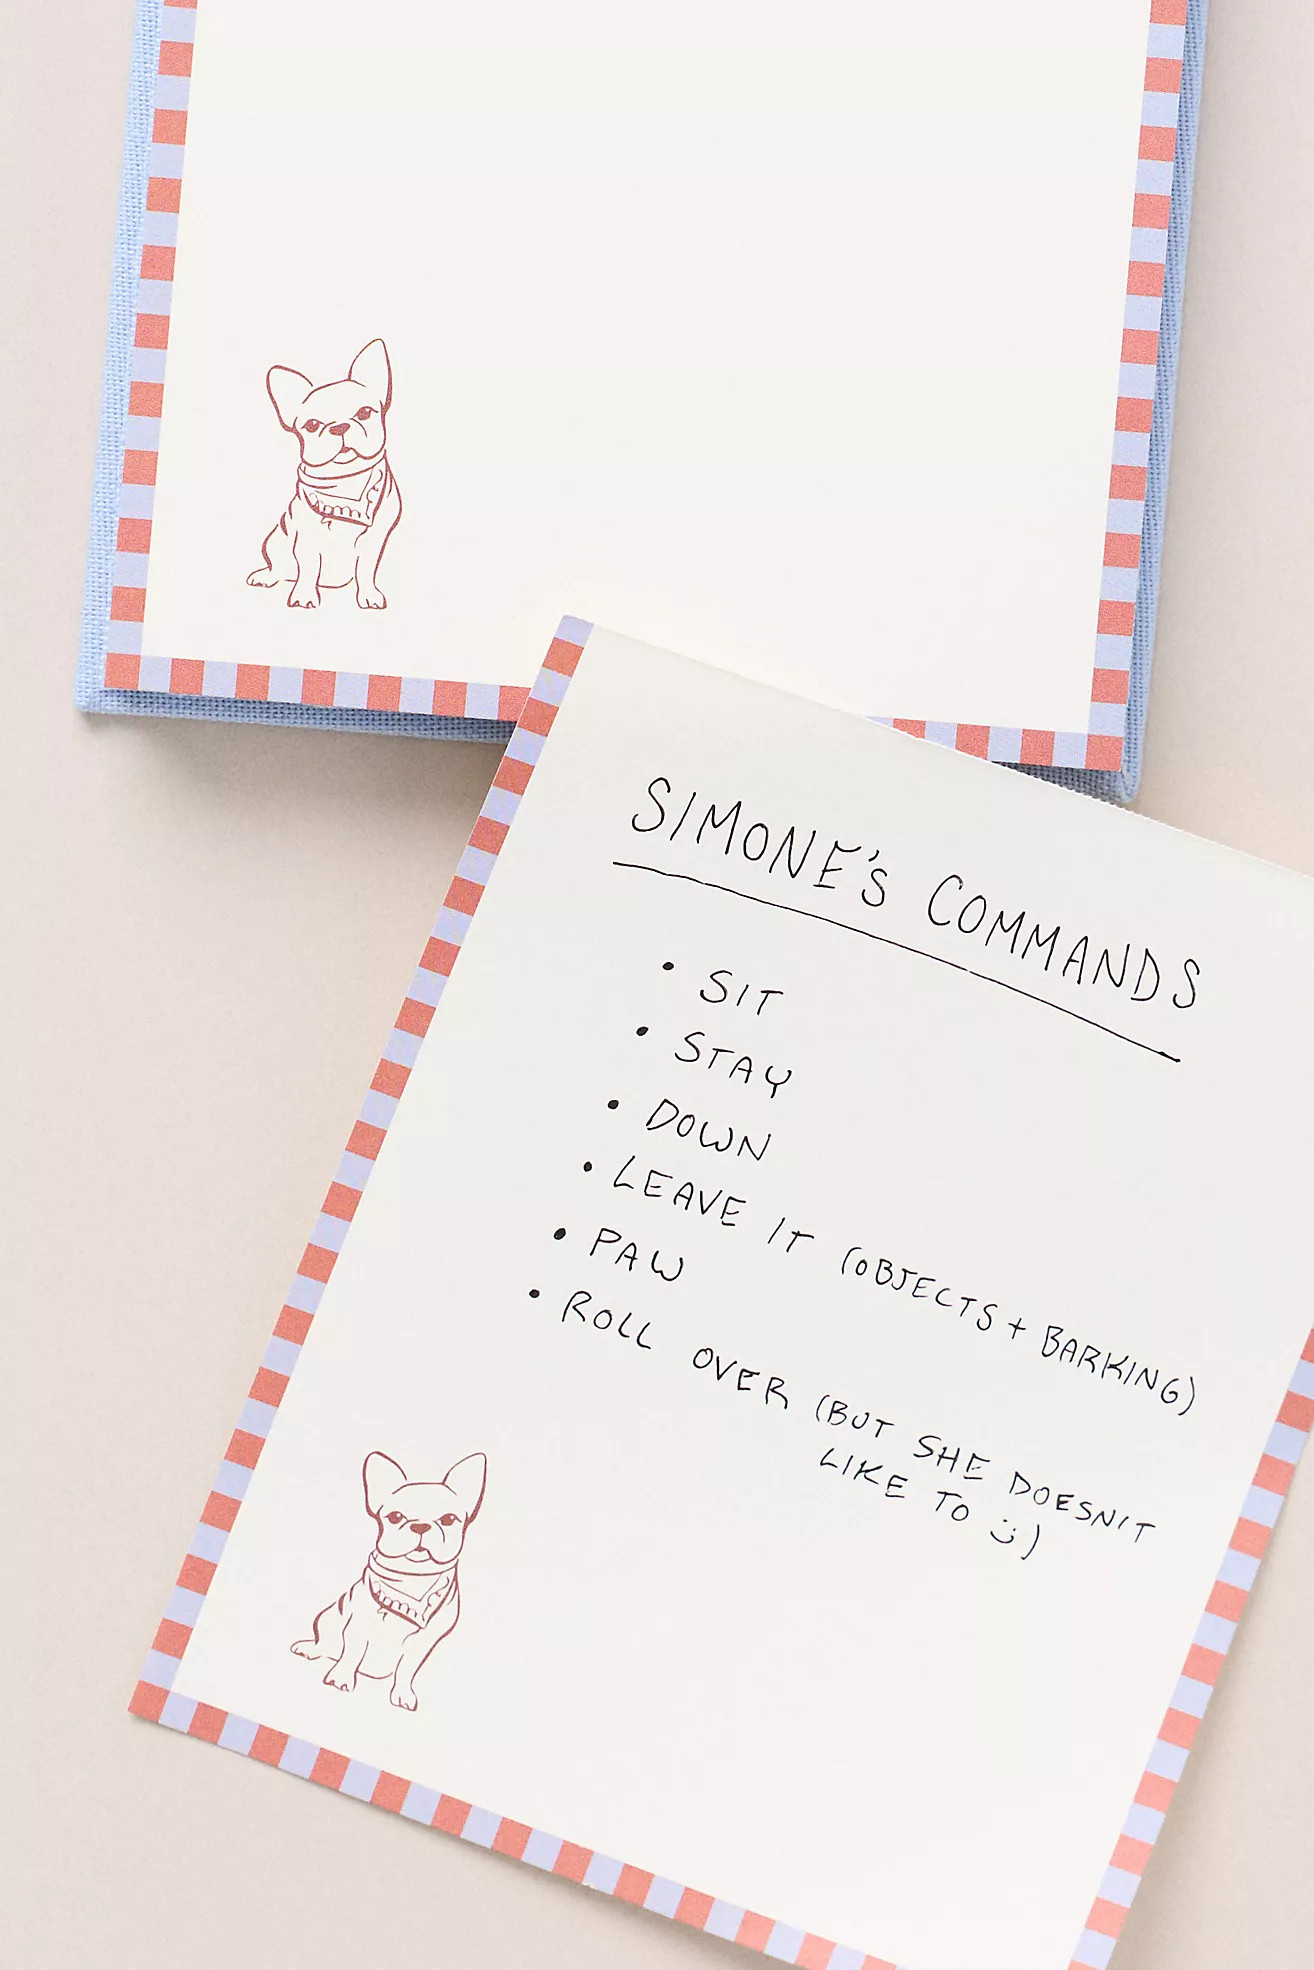 SIMONE'S COMMANDS
• SIT
• STAY
• DOWN
• LEAVE IT (OBJECTS + BARKING)
• PAW
• ROLL OVER (BUT SHE DOESN'T
LIKE TO :))